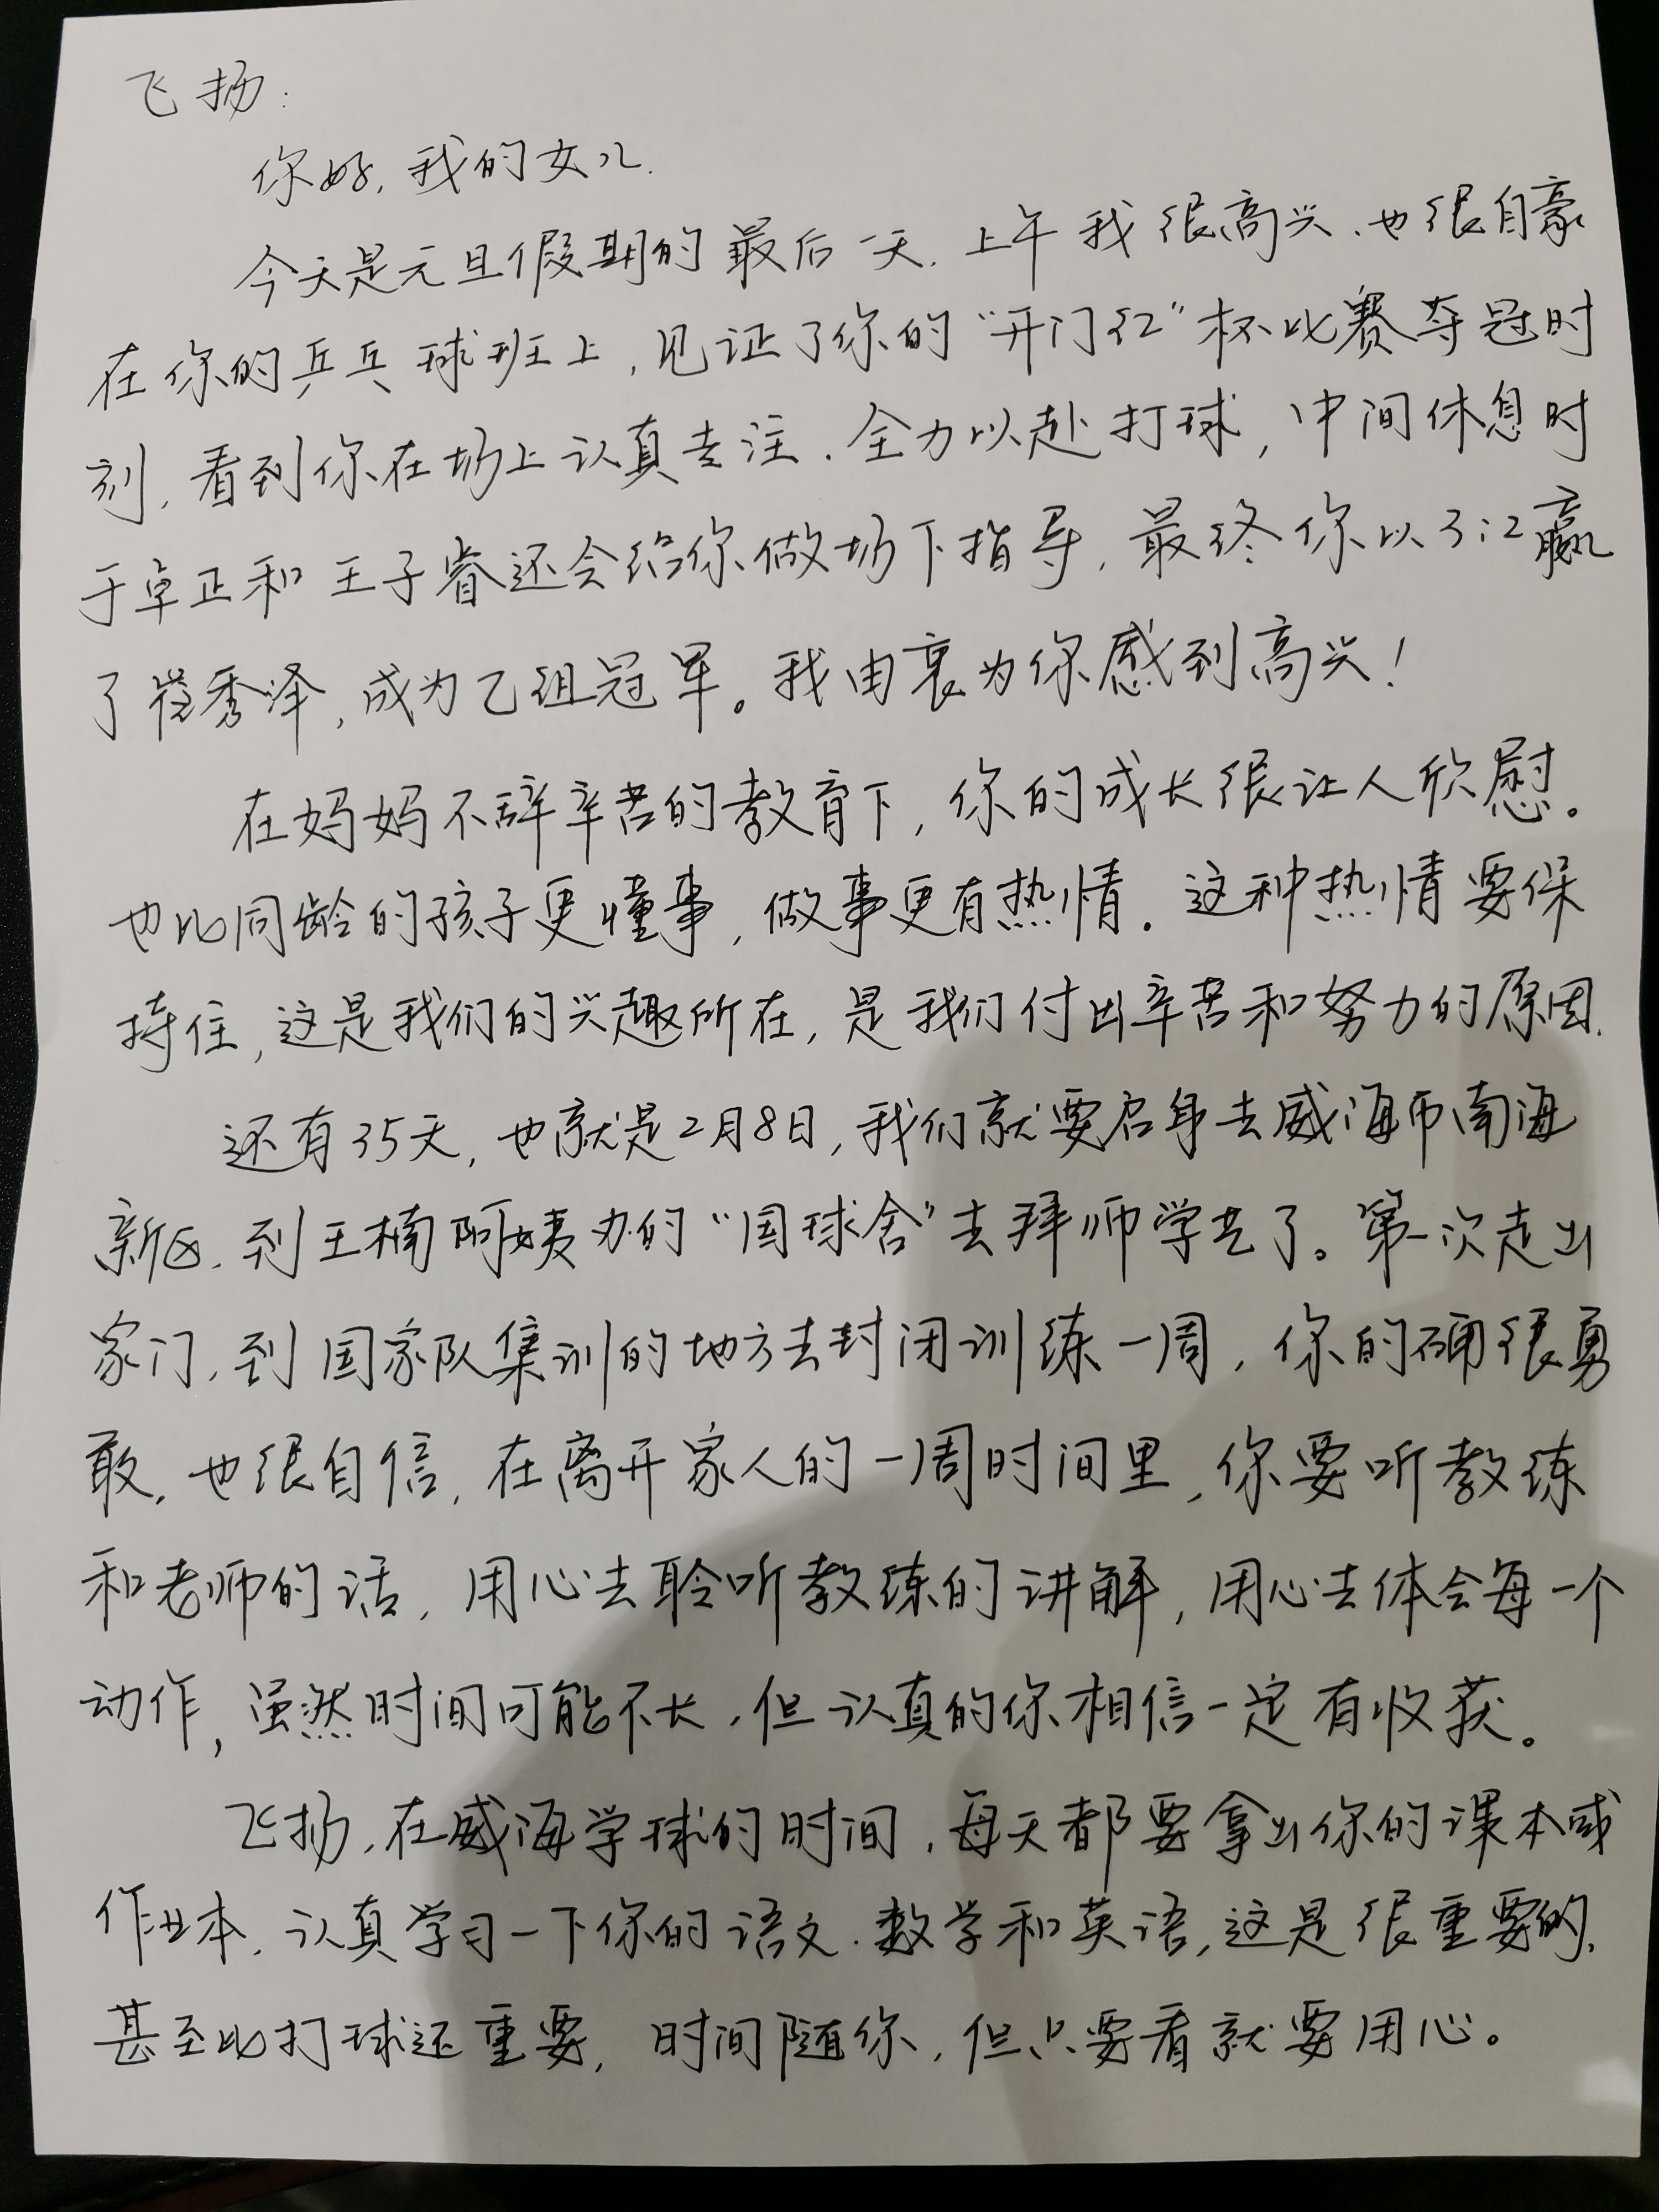 飞扬：
你好，我的女儿.
今天是元旦假期的最后一天.上午我很高兴、也很自豪
在你的乒乓球班上，见证了你的“开门红”杯比赛夺冠时
刻，看到你在场上认真专注.全力以赴打球，中间休息时
于卓正和王子睿还会给你做场下指导，最终你以3:2赢
了崔秀泽，成为乙组冠军。我由衷为你感到高兴！
在妈妈不辞辛苦的教育下，你的成长很让人欣慰。
也比同龄的孩子更懂事，做事更有热情.这种热情要保
持住，这是我们的兴趣所在，是我们付出辛苦和努力的原因.
还有35天，也就是2月8日，我们就要启身去威海市南海
新区.到王楠阿姨办的“国球舍”去拜师学艺了。第一次走出
家门，到国家队集训的地方去封闭训练一周，你的确很勇
敢，也很自信，在离开家人的一周时间里，你要听教练
和老师的话，用心去聆听教练的讲解，用心去体会每一个
动作，虽然时间可能不长，但认真的你相信一定有收获。
飞扬，在威海学球的时间，每天都要拿出你的课本或
作业本，认真学习一下你的语文.数学和英语，这是很重要的，
甚至比打球还重要，时间随你，但只要看就要用心。